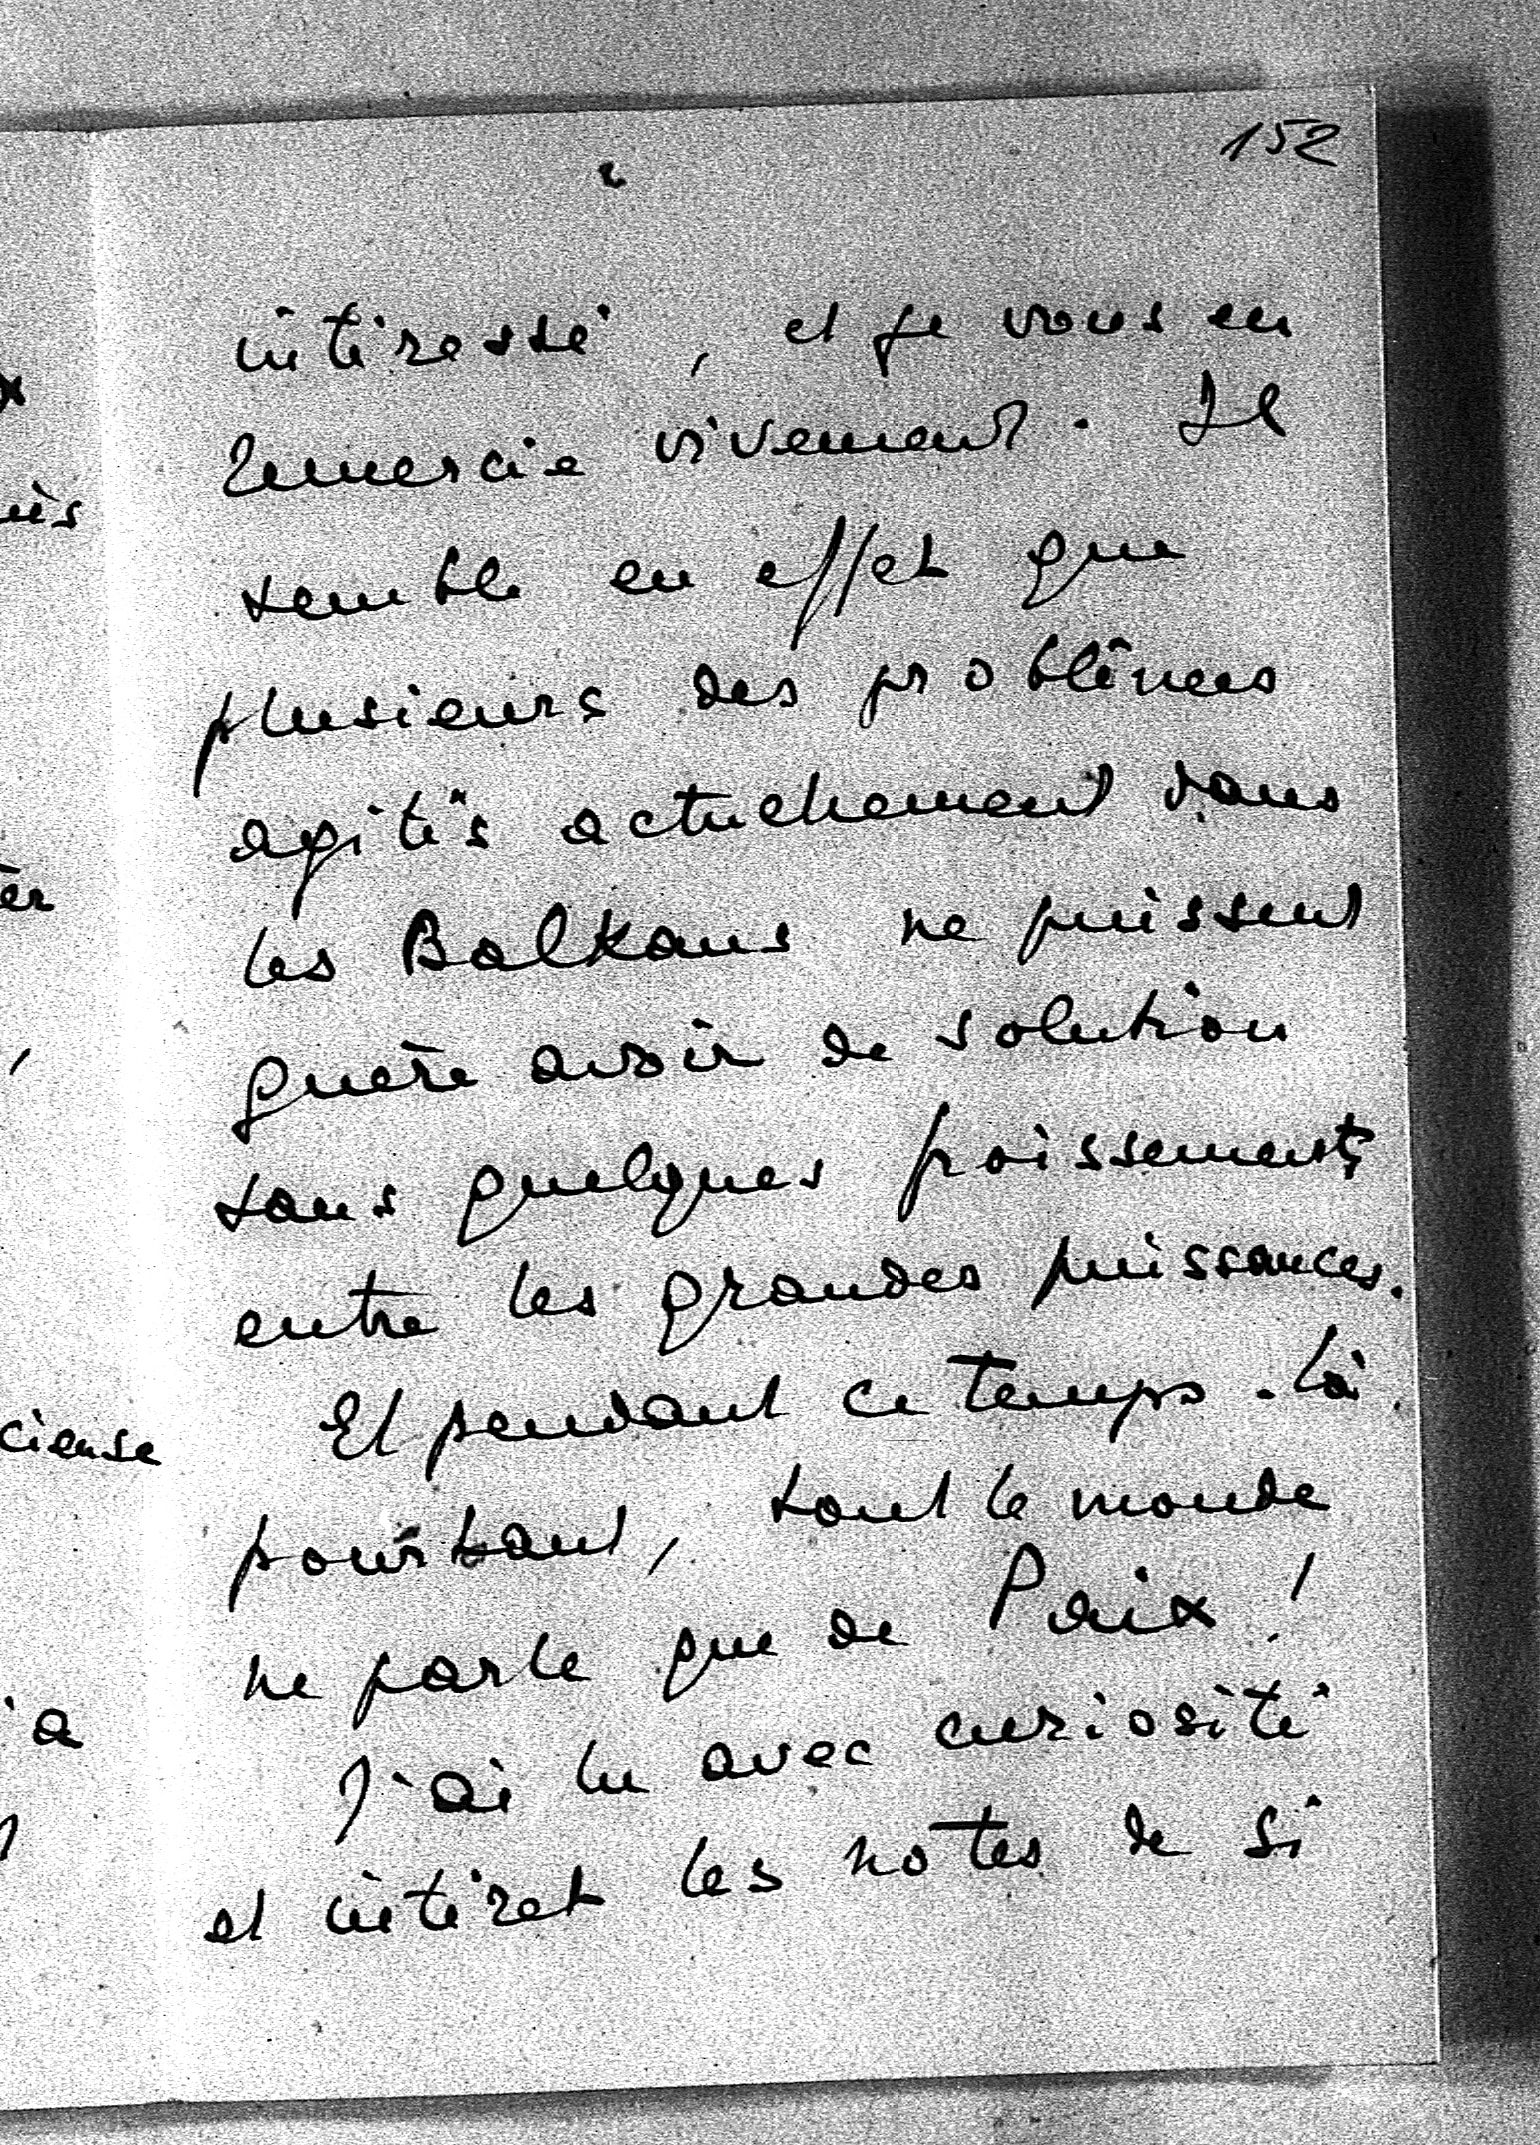 152
intéressé, et je vous en
remercie vivement. Il
semble en effet que
plusieurs des problèmes
agités actuellement dans
les Balkans ne puissent
guère avoir de solution
sans quelques froissements
entre les grandes puissances.
Et pendant ce temps-là
pourtant, tout le monde
ne parle que de Paix !
J'ai lu avec curiosité
et intéret les notes de Si
cieuse